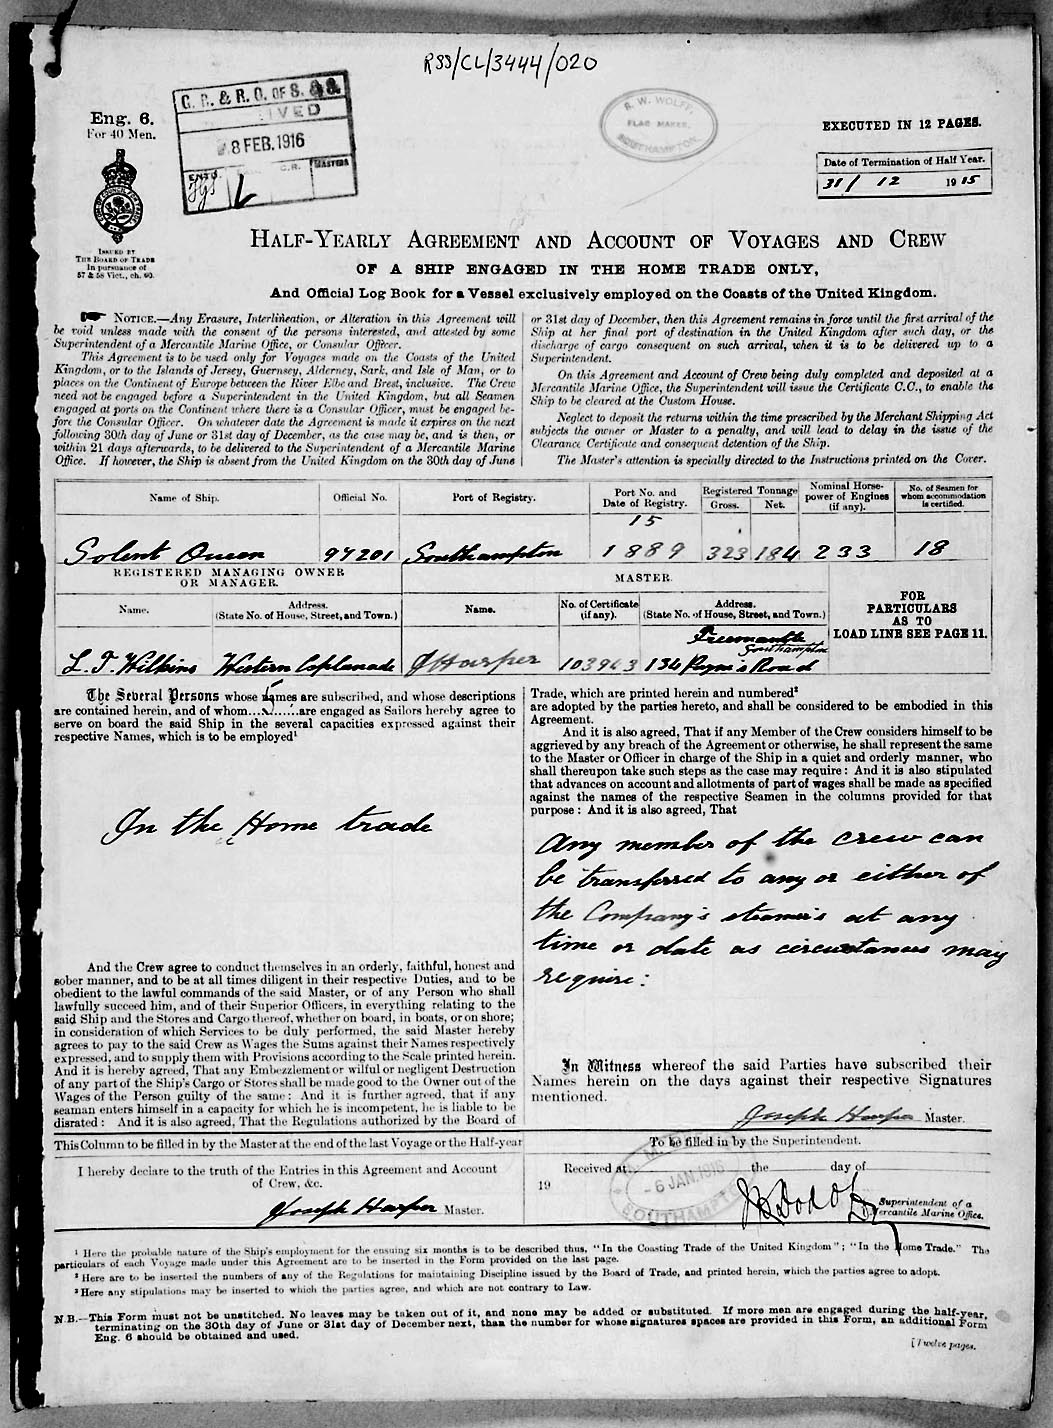 RSS/CL/3444/020
Eng. 6.
For 40 Men.
ISSUED BY
THE BOARD OF TRADE
In pursuance of
57 & 58 Vict., ch. 60.
8 FEB. 1916
C.R.
MASTERS
R. W. WOLFF,
FLAG MAKER,
SOUTHAMPTON
EXECUTED IN 12 PAGES.
Date of Termination of Half Year.
31/ 12 1915
HALF-YEARLY AGREEMENT AND ACCOUNT OF VOYAGES AND CREW
OF A SHIP ENGAGED IN THE HOME TRADE ONLY,
And Official Log Book for a Vessel exclusively employed on the Coasts of the United Kingdom.
NOTICE.—Any Erasure, Interlineation, or Alteration in this Agreement will
be void unless made with the consent of the persons interested, and attested by some
Superintendent of a Mercantile Marine Office, or Consular Officer.
This Agreement is to be used only for Voyages made on the Coasts of the United
Kingdom, or to the Islands of Jersey, Guernsey, Alderney, Sark, and Isle of Man, or to
places on the Continent of Europe between the River Elbe and Brest, inclusive. The Crew
need not be engaged before a Superintendent in the United Kingdom, but all Seamen
engaged at ports on the Continent where there is a Consular Officer, must be engaged be-
fore the Consular Officer. On whatever date the Agreement is made it expires on the next
following 30th day of June or 31st day of December, as the case may be, and is then, or
within 21 days afterwards, to be delivered to the Superintendent of a Mercantile Marine
Office. If however, the Ship is absent from the United Kingdom on the 30th day of June
or 31st day of December, then this Agreement remains in force until the first arrival of the
Ship at her final port of destination in the United Kingdom after such day, or the
discharge of cargo consequent on such arrival, when it is to be delivered up to a
Superintendent.
On this Agreement and Account of Crew being duly completed and deposited at a
Mercantile Marine Office, the Superintendent will issue the Certificate C.C., to enable the
Ship to be cleared at the Custom House.
Neglect to deposit the returns within the time prescribed by the Merchant Shipping Act
subjects the owner or Master to a penalty, and will lead to delay in the issue of the
Clearance Certificate and consequent detention of the Ship.
The Master's attention is specially directed to the Instructions printed on the Cover.
Name of Ship. Official No. Port of Registry. Port No. and Date of Registry. Registered Tonnage Gross. Net. Nominal Horse-power of Engines (if any). No. of Seamen for whom accommodation is certified.
15
Solent Queen 97201 Southampton 1889 323 184 233 18
REGISTERED MANAGING OWNER
OR MANAGER.
MASTER.
Name. Address. (State No. of House, Street, and Town.) Name. No. of Certificate (if any). Address. (State No. of House, Street, and Town.)
FOR
PARTICULARS
AS TO
LOAD LINE SEE PAGE 11.
Freemantle
Southampton
L. T. Wilkins Western Esplanade J Harper 103943 134 Payne's Road
The Several Persons whose names are subscribed, and whose descriptions
are contained herein, and of whom........are engaged as Sailors hereby agree to
serve on board the said Ship in the several capacities expressed against their
respective Names, which is to be employed¹
In the Home trade
And the Crew agree to conduct themselves in an orderly, faithful, honest and
sober manner, and to be at all times diligent in their respective Duties, and to be
obedient to the lawful commands of the said Master, or of any Person who shall
lawfully succeed him, and of their Superior Officers, in everything relating to the
said Ship and the Stores and Cargo thereof, whether on board, in boats, or on shore;
in consideration of which Services to be duly performed, the said Master hereby
agrees to pay to the said Crew as Wages the Sums against their Names respectively
expressed, and to supply them with Provisions according to the Scale printed herein.
And it is hereby agreed, That any Embezzlement or wilful or negligent Destruction
of any part of the Ship's Cargo or Stores shall be made good to the Owner out of the
Wages of the Person guilty of the same: And it is further agreed, that if any
seaman enters himself in a capacity for which he is incompetent, he is liable to be
disrated: And it is also agreed, That the Regulations authorized by the Board of
Trade, which are printed herein and numbered²
are adopted by the parties hereto, and shall be considered to be embodied in this
Agreement.
And it is also agreed, That if any Member of the Crew considers himself to be
aggrieved by any breach of the Agreement or otherwise, he shall represent the same
to the Master or Officer in charge of the Ship in a quiet and orderly manner, who
shall thereupon take such steps as the case may require: And it is also stipulated
that advances on account and allotments of part of wages shall be made as specified
against the names of the respective Seamen in the columns provided for that
purpose: And it is also agreed, That
Any member of the crew can
be transferred to any or either of
the Company's steamers at any
time or date as circumstances may
require:
In Witness whereof the said Parties have subscribed their
Names herein on the days against their respective Signatures
mentioned.
Joseph Harper Master.
This Column to be filled in by the Master at the end of the last Voyage or the Half-year
I hereby declare to the truth of the Entries in this Agreement and Account
of Crew, &c.
Joseph Harper Master.
To be filled in by the Superintendent.
Received at the day of
19
- 6 JAN. 1916
SOUTHAMPTON
Superintendent of a
Mercantile Marine Office.
¹ Here the probable nature of the Ship's employment for the ensuing six months is to be described thus, "In the Coasting Trade of the United Kingdom"; "In the Home Trade." The
particulars of each Voyage made under this Agreement are to be inserted in the Form provided on the last page.
² Here are to be inserted the numbers of any of the Regulations for maintaining Discipline issued by the Board of Trade, and printed herein, which the parties agree to adopt.
³ Here any stipulations may be inserted to which the parties agree, and which are not contrary to Law.
N.B.—This Form must not be unstitched. No leaves may be taken out of it, and none may be added or substituted. If more men are engaged during the half-year,
terminating on the 30th day of June or 31st day of December next, than the number for whose signatures spaces are provided in this Form, an additional Form
Eng. 6 should be obtained and used.
[Twelve pages.